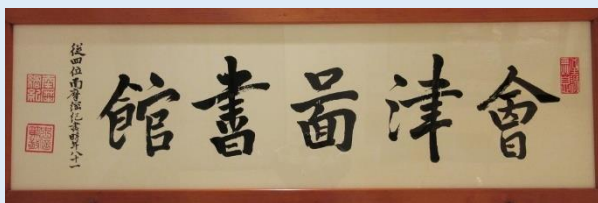 會津啚書館
從四位南摩綱紀書時年八十一